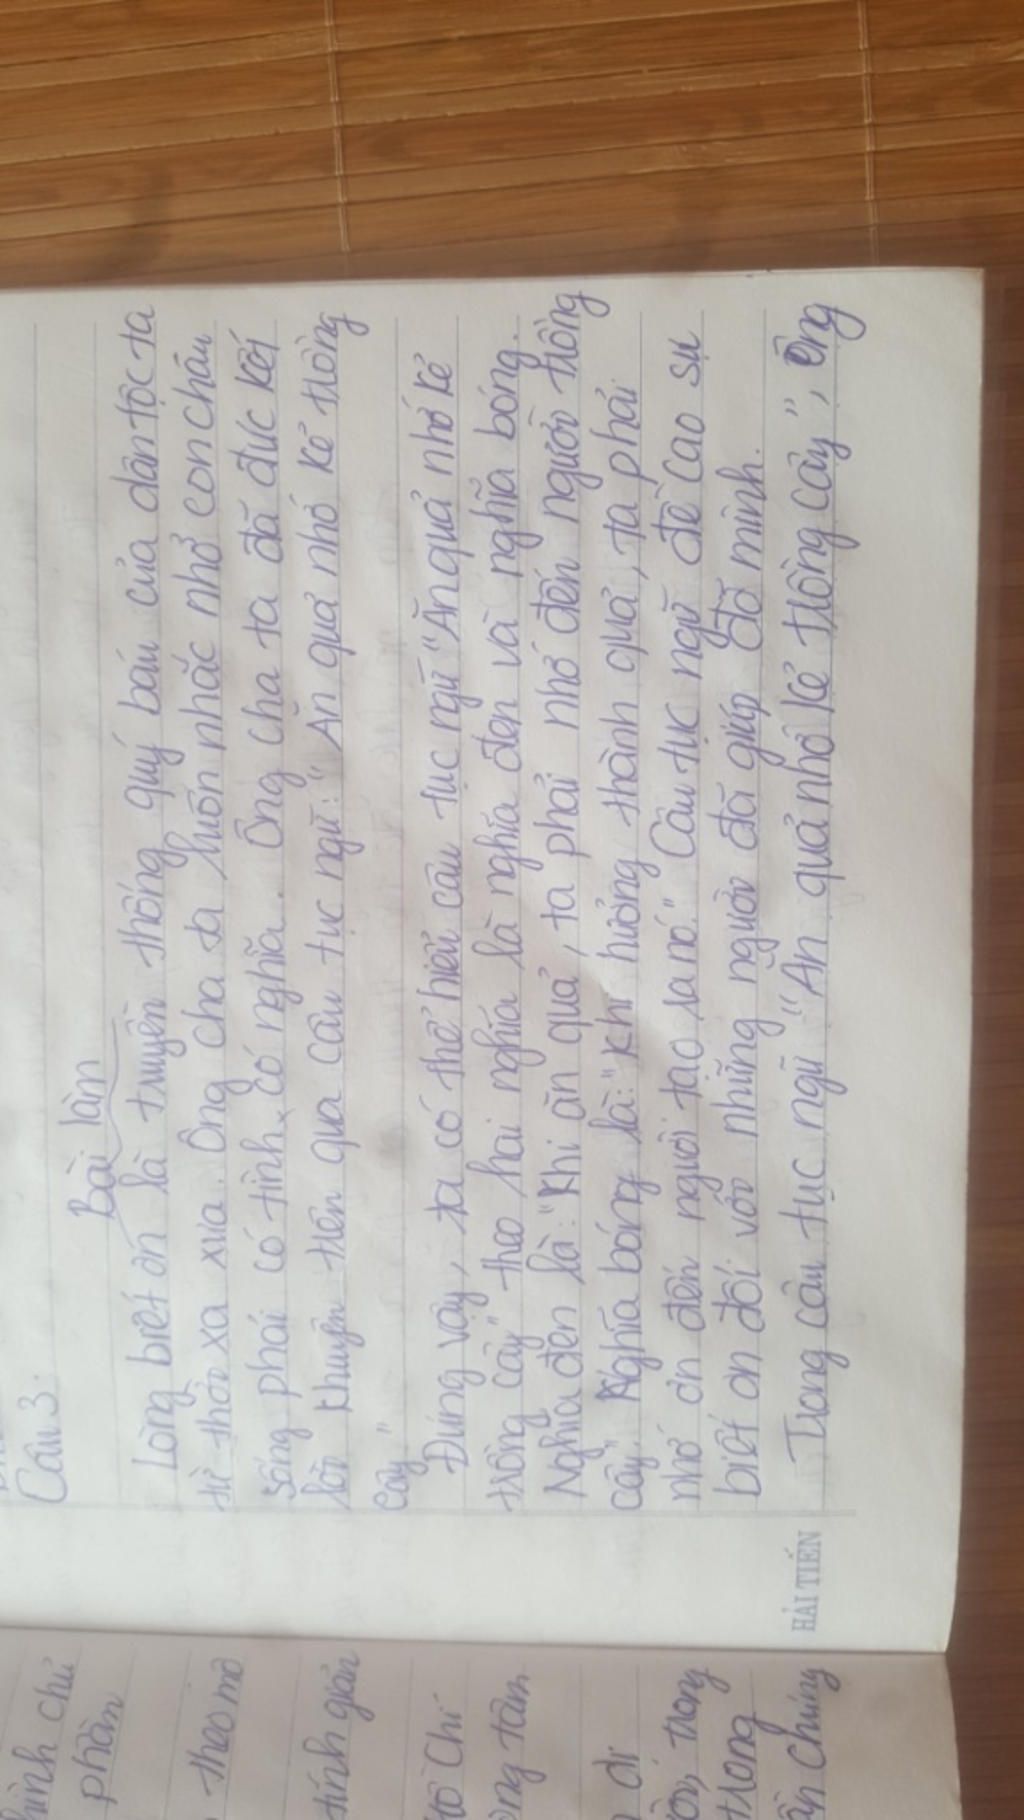 Câu 3:
Bài làm
Lòng biết ơn là truyền thống quý báu của dân tộc ta
từ thời xa xưa. Ông cha ta luôn nhắc nhở con cháu
sống phải có tình, có nghĩa. Ông cha ta đã đúc kết
lời khuyên trên qua câu tục ngữ: "Ăn quả nhớ kẻ trồng
cây"
Đúng vậy, ta có thể hiểu câu tục ngữ "Ăn quả nhớ kẻ
trồng cây" theo hai nghĩa là nghĩa đen và nghĩa bóng.
Nghĩa đen là: "Khi ăn quả, ta phải nhớ đến người trồng
cây" Nghĩa bóng là: "Khi hưởng thành quả, ta phải
nhớ ơn đến người tạo ra nó." Câu tục ngữ đề cao sự
biết ơn đối với những người đã giúp đỡ mình.
Trong câu tục ngữ "Ăn quả nhớ kẻ trồng cây", ông
HẢI TIẾN
hình chữ
phần
theo mô
tính giản
Hồ Chí
ong tâm
đi
ời, trong
trong
ần chúng